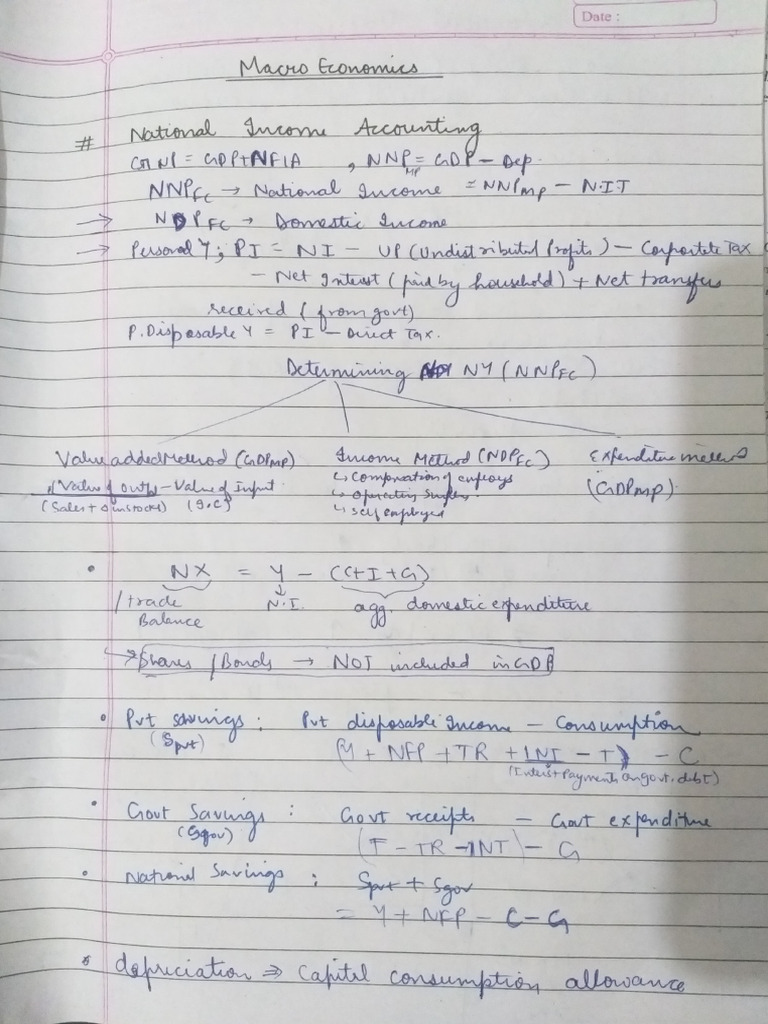 Date :
Macro Economics
# National Income Accounting
GNP = GDP+NFIA , NNP MP = GDP - Dep.
NNPFC → National Income = NNPMP - N.I.T
→ NDPFC → Domestic Income
→ Personal Y; PI = NI - UP (Undistributed Profits) - Corportate Tax
- Net Interest (paid by household) + Net transfers
received (from govt)
P. Disposable Y = PI - Direct Tax.
Determining NY (NNPFC)
Value added Method (GDPMP) Income Method (NDPFC) Expenditure method
(Value of outp - Value of Input ↳ Compensation of employs (GDPMP)
(Sales + Δ in stocks) (I.C) ↳ Operating Surplus
↳ self employed
• NX = Y - (C+I+G)
/trade N.I. agg. domestic expenditure
Balance
→ Shares / Bonds → NOT included in GDP
• Pvt savings : Pvt disposable Income - Consumption
(Spvt) (Y + NFP + TR + INT - T) - C
(Interest Payments on govt. debt)
• Govt Savings : Govt receipts - Govt expenditure
(Sgov) (T - TR - INT) - G
• National Savings : Spvt + Sgov
= Y + NFP - C - G
* depriciation ⇒ Capital consumption allowance